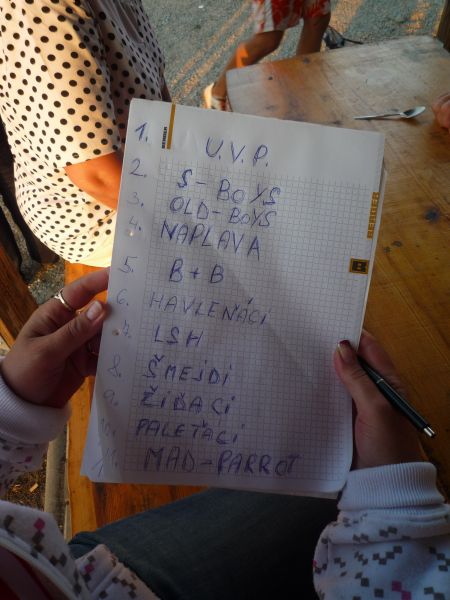 1. U.V.P.
2. S-BOYS
3. OLD-BOYS
4. NAPLAVA
5. B+B
6. HAVLENÁCI
7. LSH
8. ŠMEJDI
9. ŽIĎÁCI
10. PALEŤÁCI
11. MAD-PARROT